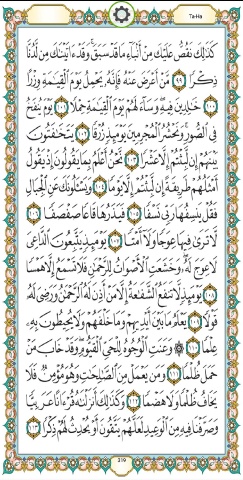 Ta-Ha
كَذَٰلِكَ نَقُصُّ عَلَيْكَ مِنْ أَنۢبَآءِ مَا قَدْ سَبَقَ ۚ وَقَدْ ءَاتَيْنَٰكَ مِن لَّدُنَّا
ذِكْرًا ﴿٩٩﴾ مَّنْ أَعْرَضَ عَنْهُ فَإِنَّهُۥ يَحْمِلُ يَوْمَ ٱلْقِيَٰمَةِ وِزْرًا
﴿١٠٠﴾ خَٰلِدِينَ فِيهِ ۖ وَسَآءَ لَهُمْ يَوْمَ ٱلْقِيَٰمَةِ حِمْلًا ﴿١٠١﴾ يَوْمَ يُنفَخُ
فِى ٱلصُّورِ ۚ وَنَحْشُرُ ٱلْمُجْرِمِينَ يَوْمَئِذٍ زُرْقًا ﴿١٠٢﴾ يَتَخَٰفَتُونَ
بَيْنَهُمْ إِن لَّبِثْتُمْ إِلَّا عَشْرًا ﴿١٠٣﴾ نَّحْنُ أَعْلَمُ بِمَا يَقُولُونَ إِذْ يَقُولُ
أَمْثَلُهُمْ طَرِيقَةً إِن لَّبِثْتُمْ إِلَّا يَوْمًا ﴿١٠٤﴾ وَيَسْـَٔلُونَكَ عَنِ ٱلْجِبَالِ
فَقُلْ يَنسِفُهَا رَبِّى نَسْفًا ﴿١٠٥﴾ فَيَذَرُهَا قَاعًا صَفْصَفًا ﴿١٠٦﴾
لَّا تَرَىٰ فِيهَا عِوَجًا وَلَآ أَمْتًا ﴿١٠٧﴾ يَوْمَئِذٍ يَتَّبِعُونَ ٱلدَّاعِىَ
لَا عِوَجَ لَهُۥ ۖ وَخَشَعَتِ ٱلْأَصْوَاتُ لِلرَّحْمَٰنِ فَلَا تَسْمَعُ إِلَّا هَمْسًا
﴿١٠٨﴾ يَوْمَئِذٍ لَّا تَنفَعُ ٱلشَّفَٰعَةُ إِلَّا مَنْ أَذِنَ لَهُ ٱلرَّحْمَٰنُ وَرَضِىَ لَهُۥ
قَوْلًا ﴿١٠٩﴾ يَعْلَمُ مَا بَيْنَ أَيْدِيهِمْ وَمَا خَلْفَهُمْ وَلَا يُحِيطُونَ بِهِۦ
عِلْمًا ﴿١١٠﴾ ۞ وَعَنَتِ ٱلْوُجُوهُ لِلْحَىِّ ٱلْقَيُّومِ ۖ وَقَدْ خَابَ مَنْ
حَمَلَ ظُلْمًا ﴿١١١﴾ وَمَن يَعْمَلْ مِنَ ٱلصَّٰلِحَٰتِ وَهُوَ مُؤْمِنٌ فَلَا
يَخَافُ ظُلْمًا وَلَا هَضْمًا ﴿١١٢﴾ وَكَذَٰلِكَ أَنزَلْنَٰهُ قُرْءَانًا عَرَبِيًّا
وَصَرَّفْنَا فِيهِ مِنَ ٱلْوَعِيدِ لَعَلَّهُمْ يَتَّقُونَ أَوْ يُحْدِثُ لَهُمْ ذِكْرًا ﴿١١٣﴾
319